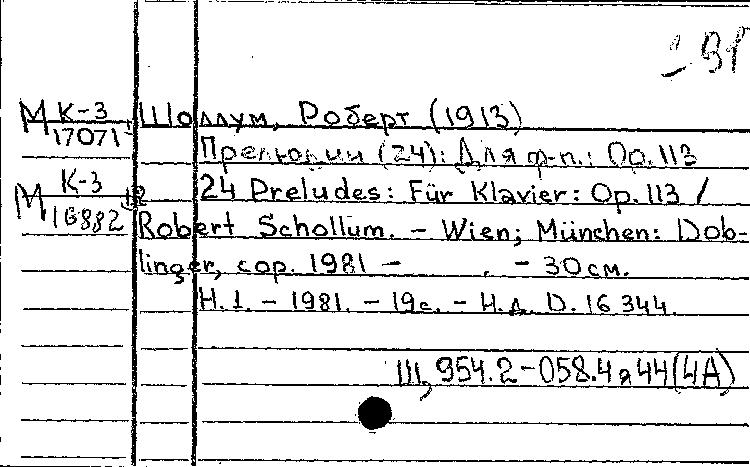 М К-3 17071
Шоллум, Роберт (1913)
Прелюдии (24): Для ф-п.: Op. 113
М К-3 16882
24 Preludes: Für Klavier: Op. 113 /
Robert Schollum. – Wien; München: Dob-
linger, cop. 1981 – . – 30 см.
Н. 1. – 1981. – 19 с. – Н.д. D. 16 344.
Ш, 954.2-058.4я44(4А)